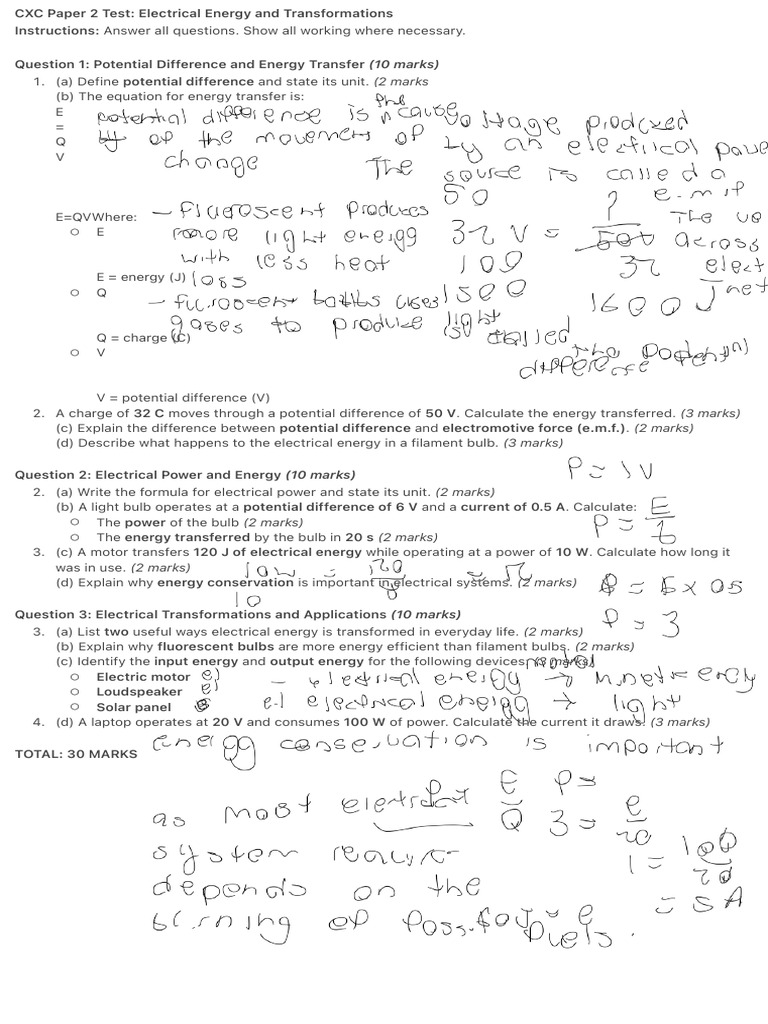 CXC Paper 2 Test: Electrical Energy and Transformations
Instructions: Answer all questions. Show all working where necessary.
Question 1: Potential Difference and Energy Transfer (10 marks)
1. (a) Define potential difference and state its unit. (2 marks
(b) The equation for energy transfer is:
E
=
Q
V
potential difference is the cause
of the movement of
change
voltage produced
by an electrical powe
The source is called a
e.m.f
E=QVWhere:
○ E
E = energy (J)
○ Q
Q = charge (C)
○ V
V = potential difference (V)
- fluoroscent produces
more light energy
with less heat
loss
gases to produce light
50
32 V =
100
1500
1600 J
?
32
The vo
across
elect
net
is called
the potential
difference
2. A charge of 32 C moves through a potential difference of 50 V. Calculate the energy transferred. (3 marks)
(c) Explain the difference between potential difference and electromotive force (e.m.f.). (2 marks)
(d) Describe what happens to the electrical energy in a filament bulb. (3 marks)
Question 2: Electrical Power and Energy (10 marks)
P = IV
2. (a) Write the formula for electrical power and state its unit. (2 marks)
(b) A light bulb operates at a potential difference of 6 V and a current of 0.5 A. Calculate:
○ The power of the bulb (2 marks)
○ The energy transferred by the bulb in 20 s (2 marks)
P = E
t
3. (c) A motor transfers 120 J of electrical energy while operating at a power of 10 W. Calculate how long it
was in use. (2 marks)
10W = 120
10
(d) Explain why energy conservation is important in electrical systems. (2 marks)
P = 6 x 05
P = 3
Question 3: Electrical Transformations and Applications (10 marks)
3. (a) List two useful ways electrical energy is transformed in everyday life. (2 marks)
(b) Explain why fluorescent bulbs are more energy efficient than filament bulbs. (2 marks)
(c) Identify the input energy and output energy for the following devices: (3 marks)
○ Electric motor
○ Loudspeaker
○ Solar panel
- electrical energy →
electrical energy → light
4. (d) A laptop operates at 20 V and consumes 100 W of power. Calculate the current it draws. (3 marks)
TOTAL: 30 MARKS
energy conservation is important
as most
system
depends on the
burning of
fuels.
E
Q
P=
3 = e
20
1 = 100
20
= 5A